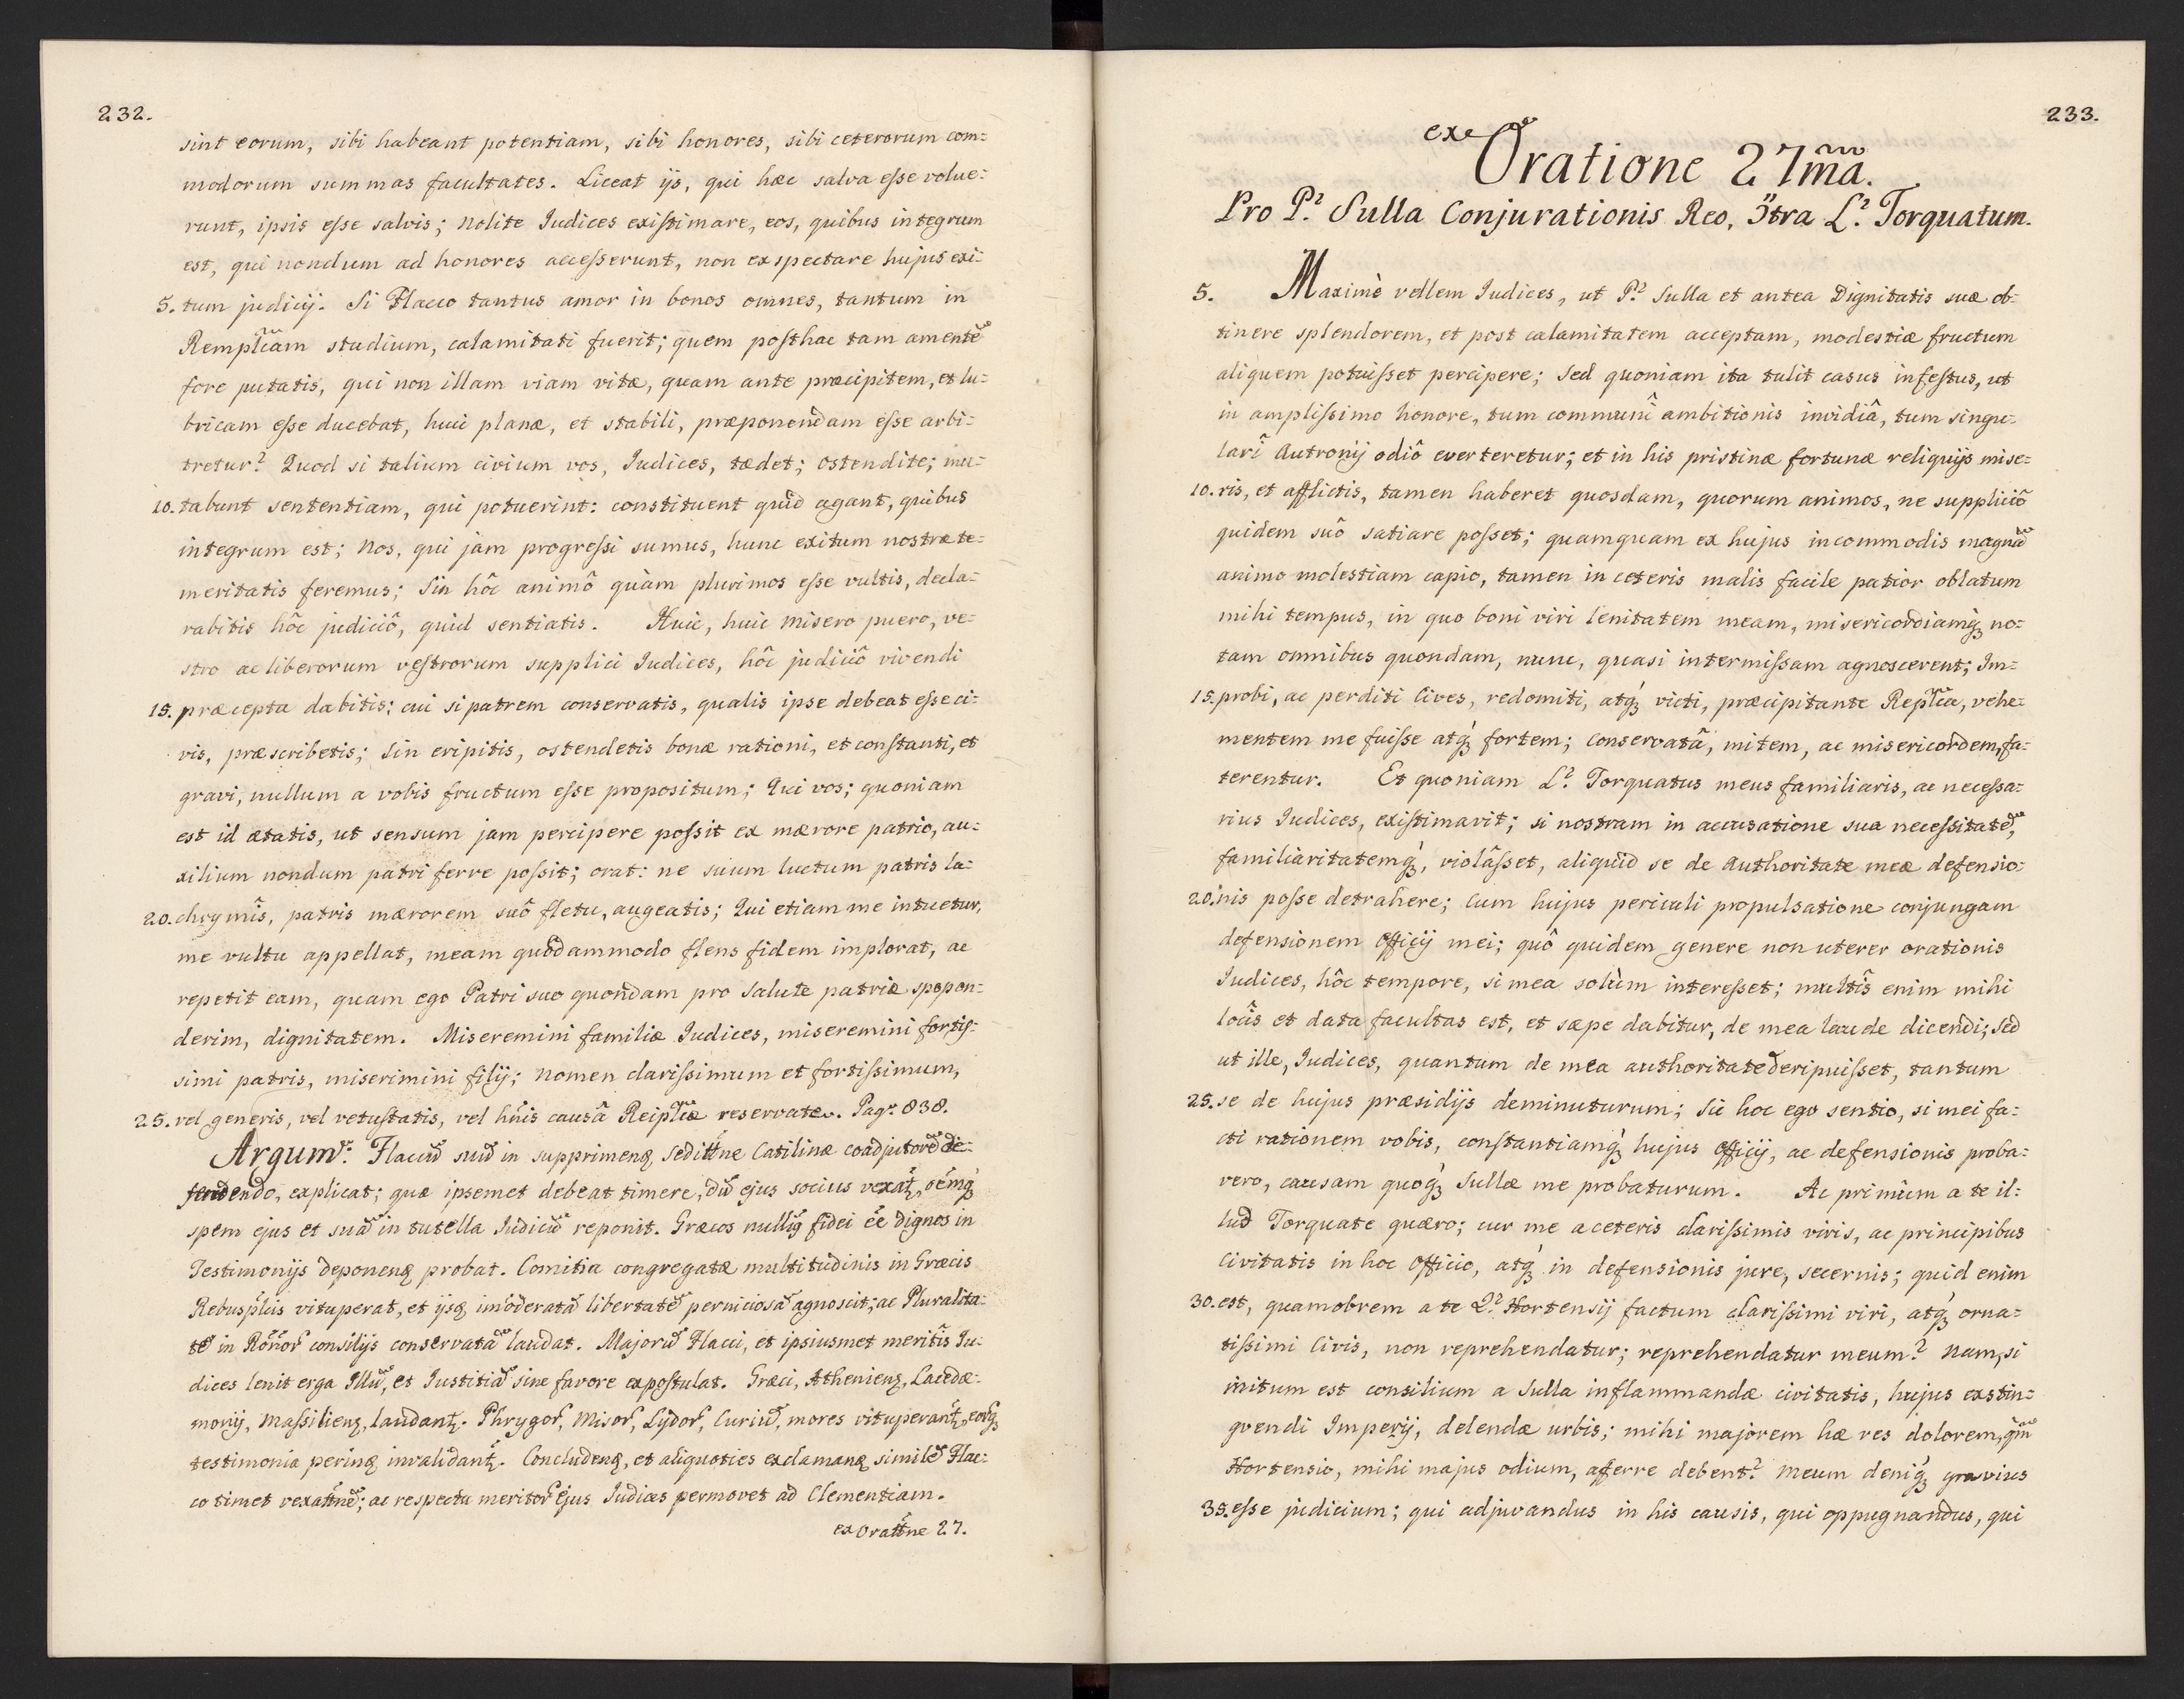 232.
sint eorum, sibi habeant potentiam, sibi honores, sibi ceterorum com=
modorum summas facultates. Liceat ijs, qui hæc salva eſse volue=
runt, ipsis eſse salvis; nolite Iudices exiſtimare, eos, quibus integrum
est, qui nondum ad honores acceſserunt, non exspectare hujus exi=
5. tum judicij. Si Flacco tantus amor in bonos omnes, tantum in
Rempl̃cam studium, calamitati fuerit; quem poſthac tam amentẽ
fore putatis, qui non illam viam vitæ, quam ante præcipitem, et lu=
bricam eſse ducebat, huic planæ, et stabili, præponendam eſse arbi=
tretur? Quod si talium civium vos, Iudices, tædet; ostendite; mu=
10. tabunt sententiam, qui potuerint: constituent quid agant, quibus
integrum est; Nos, qui jam progreſsi sumus, hunc exitum nostræ te=
meritatis feremus; Sin hôc animô quàm plurimos eſse vultis, decla=
rabitis hôc judiciô, quid sentiatis. Huic, huic misero puero, ve=
stro ac liberorum veſtrorum supplici Iudices, hôc judiciô vivendi
15. præcepta dabitis: cui si patrem conservatis, qualis ipse debeat eſse ci=
vis, præscribetis; Sin eripitis, ostendetis bonæ rationi, et conſtanti, et
gravi, nullum a vobis fructum eſse propositum; Qui vos; quoniam
est id ætatis, ut sensum jam percipere poſsit ex mærore patrio, au=
xilium nondum patri ferre poſsit; orat: ne suum luctum patris la=
20. chrymîs, patris mærorem suô fletu, augeatis; Qui etiam me intuetur,
me vultu appellat, meam quodammodo flens fidem implorat, ac
repetit eam, quam ego Patri suo quondam pro salute patriæ spopon=
derim, dignitatem. Miseremini familiæ Iudices, miseremini fortiſ=
simi patris, miserimini filij; nomen clariſsimum et fortiſsimum,
25. vel generis, vel vetuſtatis, vel hũis causâ Reipl̃cæ reservate. Pag. 838.
Argumt: Flacũ suũ in supprimenꝗ seditt̃ne Catilinæ coadjutorẽ de=
fendendo, explicat; quæ ipsemet debeat timere, dũ ejus socius vexat̃, oẽmꝗ
spem ejus et suã in tutella Iudicũ reponit. Græcos nulliꝗ fidei eẽ dignos in
Testimonijs deponenꝗ probat. Comitia congregatæ multitudinis in Græcis
Rebuspl̃cis vituperat, et ijsꝗ imõderatã libertatẽ perniciosã agnoscit; ac Pluralita=
tẽ in Rõnor̃ consilijs conservatã laudat. Majorũ Flacci, et ipsiusmet meritîs Iu=
dices lenit erga Illũ, et Iustitiã sine favore expoſtulat. Græci, Athenienꝗ, Lacedæ=
monij, Maſsilienꝗ, laudant̃. Phrygor̃, Misor̃, Lydor̃, Curiũ, mores vituperant̃, eorꝗ
testimonia perinꝗ invalidant̃. Concludenꝗ, et aliquoties exclamanꝗ similẽ Flac=
co timet vexatt̃nẽ; ac respectu meritor̃ ejus Iudices permovet ad Clementiam.
ex oratt̃ne 27.
233.
ex Oratione 27mã.
Pro P? Sulla Conjurationis Reo, Ɔ̃tra L? Torquatum.
5. Maximè vellem Iudices, ut P? Sulla et antea Dignitatis suæ ob=
tinere splendorem, et post calamitatem acceptam, modestiæ fructum
aliquem potuiſset percipere; Sed quoniam ita tulit casus infeſtus, ut
in ampliſsimo honore, tum communî ambitionis invidiâ, tum singu=
larî Autronij odiô everteretur; et in his pristinæ fortunæ reliquijs mise=
10. ris, et afflictis, tamen haberet quosdam, quorum animos, ne suppliciô
quidem suô satiare poſset; quamquam ex hujus incommodis magnã
animo molestiam capio, tamen in ceteris malis facile patior oblatum
mihi tempus, in quo boni viri lenitatem meam, misericordiamꝗ́ no=
tam omnibus quondam, nunc, quasi intermiſsam agnoscerent; Im=
15. probi, ac perditi Cives, redomiti, atꝗ́ victi, præcipitante Repl̃ca, vehe=
mentem me fuiſse atꝗ́ fortem; conservatâ, mitem, ac misericordem, fa=
terentur. Et quoniam L? Torquatus meus familiaris, ac neceſsa=
rius Iudices, exiſtimavit; si nostram in accusatione sua neceſsitatẽ,
familiaritatemꝗ́, violâſset, aliquid se de Authoritate meæ defensio=
20. nis poſse detrahere; Cum hujus periculi propulsatione conjungam
defensionem Officij mei; quô quidem genere non uterer orationis
Iudices, hôc tempore, si mea solùm intereſset; multîs enim mihi
locîs et data facultas est, et sæpe dabitur, de mea laude dicendi; Sed
ut ille, Iudices, quantum de mea authoritate deripuiſset, tantum
25. se de hujus præsidijs deminuturum; Sic hoc ego sentio, si mei fa=
cti rationem vobis, conſtantiamꝗ́ hujus Officij, ac defensionis proba=
vero, causam quoꝗ́ Sullæ me probaturum. Ac primùm a te il=
lud Torquate quæro; cur me a ceteris clariſsimis viris, ac principibus
Civitatis in hoc Officio, atꝗ́ in defensionis jure, secernis; quid enim
30. est, quamobrem a te Q? Hortensij factum clariſsimi viri, atꝗ́ orna=
tiſsimi Civis, non reprehendatur; reprehendatur meum? Nam, si
initum est consilium a Sulla inflammandæ civitatis, hujus exstin=
gvendi Imperij, delendæ urbis; mihi majorem hæ res dolorem, qm̃
Hortensio, mihi majus odium, afferre debent? Meum deniꝗ́ gravius
35. eſse judicium; qui adjuvandus in his causis, qui oppugnandus, qui